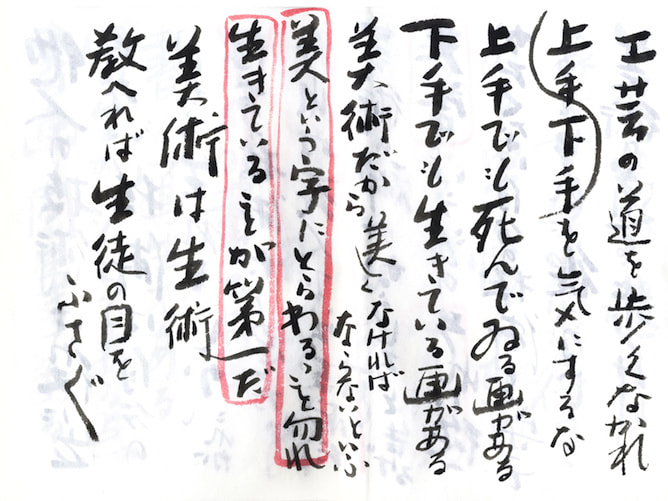 工芸の道を歩くなかれ
上手下手を気にするな
上手でも死んでゐる画がある
下手でも生きている画がある
美術だから美しくなければ
ならないといふ
美という字にとらわるゝこと勿れ
生きていることが第一だ
美術は生術
教へれば生徒の目を
ふさぐ